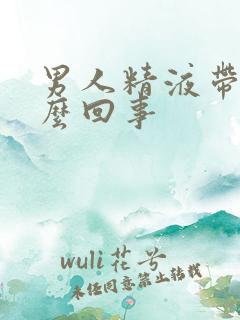 男人精液带
么回事
wuli花兮
未经同意禁止转载